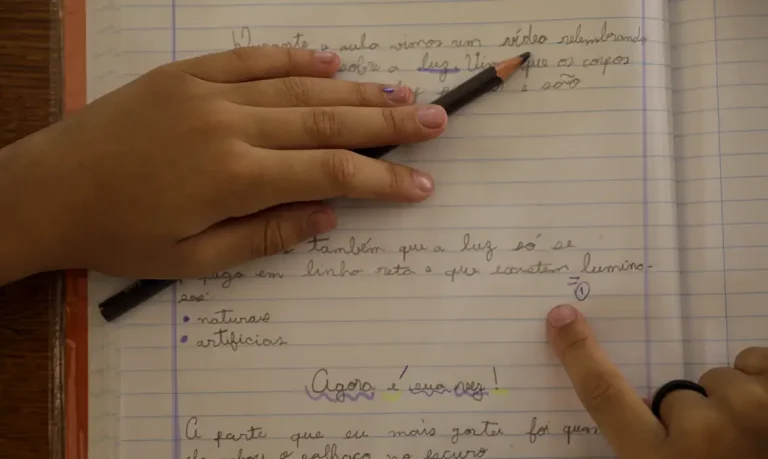 Durante a aula vimos um vídeo relembrando
sobre a luz. que os corpos
e são
também que a luz só se
em linha reta e que existem lumino-
sos:
①
• naturais
• artificiais
Agora é sua vez!
A parte que eu mais gostei foi quan
o palhaço no escuro